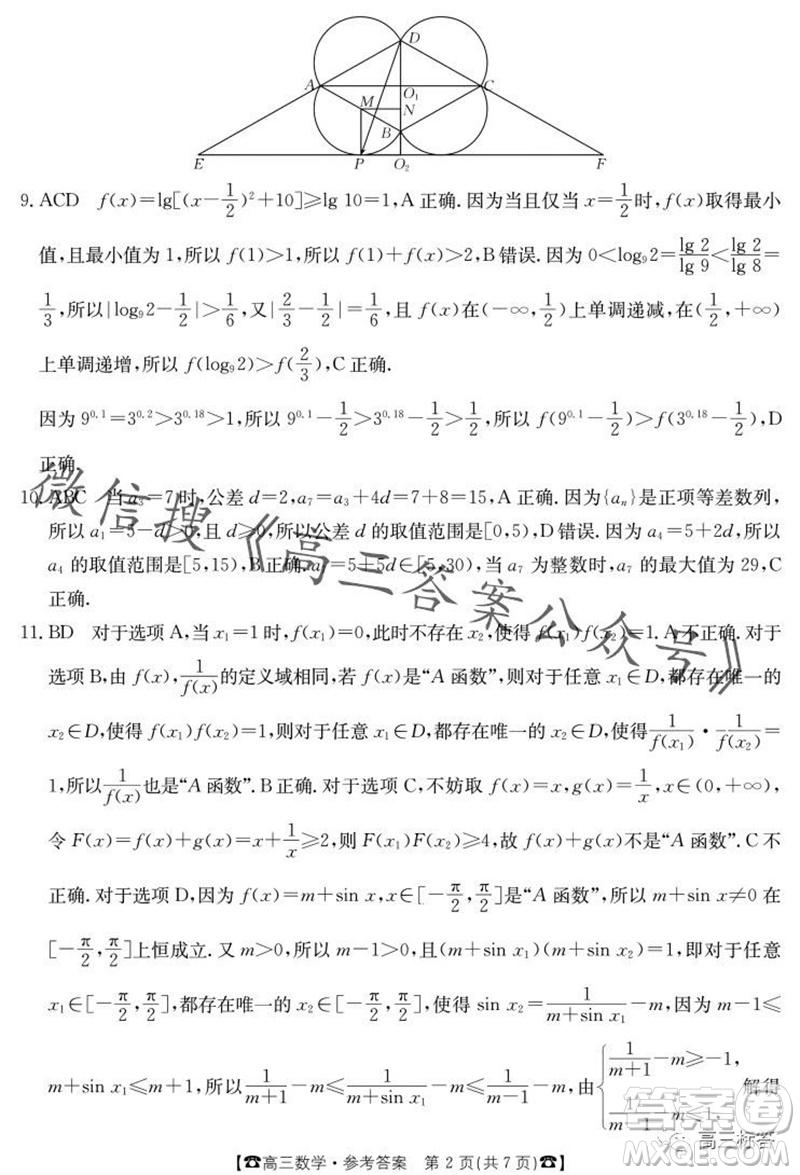 D
A
O₁
C
M
N
B
E
P
O₂
F
9. ACD f(x)=lg[(x-1/2)²+10]≥lg 10=1,A 正确. 因为当且仅当 x=1/2时,f(x)取得最小
值,且最小值为 1,所以 f(1)>1,所以 f(1)+f(x)>2,B 错误. 因为 0<log₉2=lg 2/lg 9<lg 2/lg 8=
1/3,所以|log₉2-1/2|>1/6,又|2/3-1/2|=1/6,且 f(x)在(-∞,1/2)上单调递减,在(1/2,+∞)
上单调递增,所以 f(log₉2)>f(2/3),C 正确.
因为 9^0.1=3^0.2>3^0.18>1,所以 9^0.1-1/2>3^0.18-1/2>1/2,所以 f(9^0.1-1/2)>f(3^0.18-1/2),D
正确.
10. ABC 当 a₃=7 时,公差 d=2,a₇=a₃+4d=7+8=15,A 正确. 因为{aₙ}是正项等差数列,
所以 a₁=5-d>0,且 d≥0,所以公差 d 的取值范围是[0,5),D 错误. 因为 a₄=5+2d,所以
a₄ 的取值范围是[5,15),B 正确. a₇=5+5d∈[5,30),当 a₇ 为整数时,a₇ 的最大值为 29,C
正确.
11. BD 对于选项 A,当 x₁=1 时,f(x₁)=0,此时不存在 x₂,使得 f(x₁)f(x₂)=1. A 不正确. 对于
选项 B,由 f(x),1/f(x)的定义域相同,若 f(x)是“A 函数”,则对于任意 x₁∈D,都存在唯一的
x₂∈D,使得 f(x₁)f(x₂)=1,则对于任意 x₁∈D,都存在唯一的 x₂∈D,使得1/f(x₁)·1/f(x₂)=
1,所以1/f(x)也是“A 函数”. B 正确. 对于选项 C,不妨取 f(x)=x,g(x)=1/x,x∈(0,+∞),
令 F(x)=f(x)+g(x)=x+1/x≥2,则 F(x₁)F(x₂)≥4,故 f(x)+g(x)不是“A 函数”. C 不
正确. 对于选项 D,因为 f(x)=m+sin x,x∈[-π/2,π/2]是“A 函数”,所以 m+sin x≠0 在
[-π/2,π/2]上恒成立. 又 m>0,所以 m-1>0,且(m+sin x₁)(m+sin x₂)=1,即对于任意
x₁∈[-π/2,π/2],都存在唯一的 x₂∈[-π/2,π/2],使得 sin x₂=1/(m+sin x₁)-m,因为 m-1≤
m+sin x₁≤m+1,所以1/(m+1)-m≤1/(m+sin x₁)-m≤1/(m-1)-m,由{1/(m+1)-m≥-1, 1/(m-1)-m≤1, 解得
☎高三数学·参考答案 第 2 页(共 7 页)☎
微信搜《高三答案公众号》
答案圈
MXQE.COM
高三标答